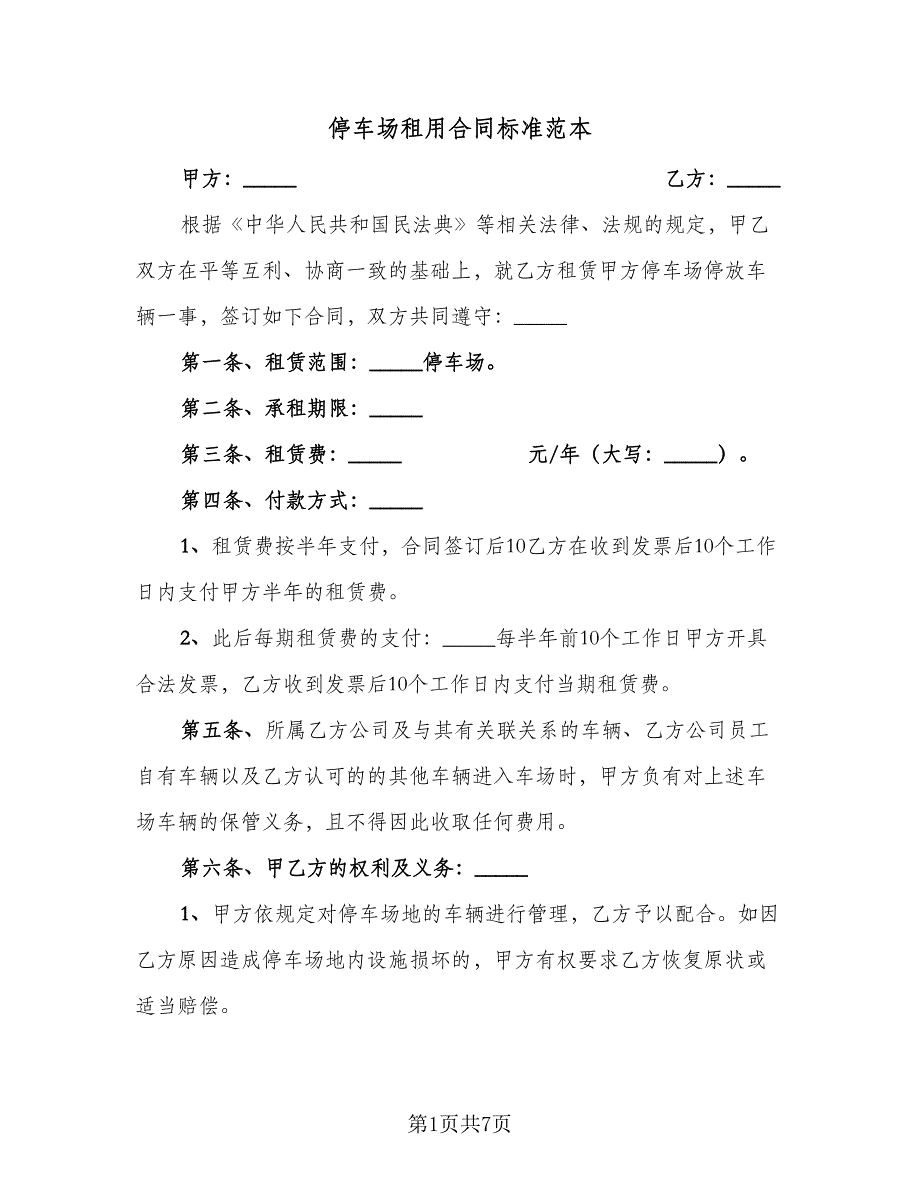 停车场租用合同标准范本
甲方：_____ 乙方：_____
根据《中华人民共和国民法典》等相关法律、法规的规定，甲乙
双方在平等互利、协商一致的基础上，就乙方租赁甲方停车场停放车
辆一事，签订如下合同，双方共同遵守：_____
第一条、租赁范围：_____停车场。
第二条、承租期限：_____
第三条、租赁费：_____ 元/年（大写：_____）。
第四条、付款方式：_____
1、租赁费按半年支付，合同签订后10乙方在收到发票后10个工作
日内支付甲方半年的租赁费。
2、此后每期租赁费的支付：_____每半年前10个工作日甲方开具
合法发票，乙方收到发票后10个工作日内支付当期租赁费。
第五条、所属乙方公司及与其有关联关系的车辆、乙方公司员工
自有车辆以及乙方认可的的其他车辆进入车场时，甲方负有对上述车
场车辆的保管义务，且不得因此收取任何费用。
第六条、甲乙方的权利及义务：_____
1、甲方依规定对停车场地的车辆进行管理，乙方予以配合。如因
乙方原因造成停车场地内设施损坏的，甲方有权要求乙方恢复原状或
适当赔偿。
第1页共7页